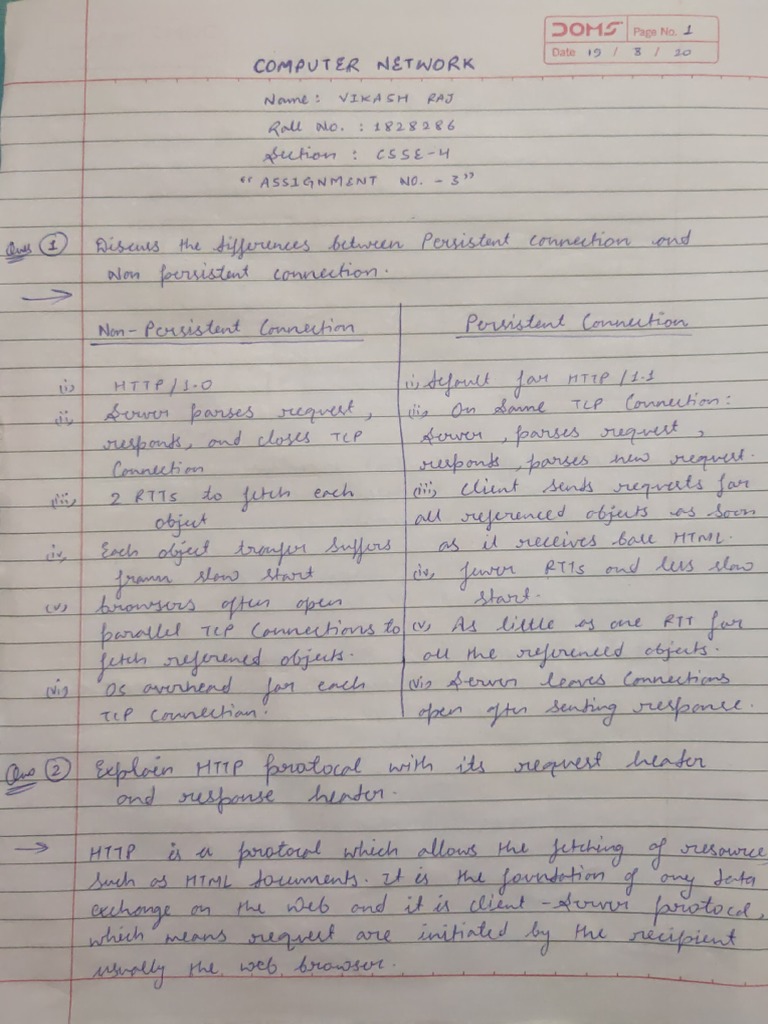 DOMS Page No. 1
Date 19 / 8 / 20
COMPUTER NETWORK
Name: VIKASH RAJ
Roll No. : 1828286
Section : CSSE-4
"ASSIGNMENT NO. - 3"
Ques 1 Discuss the differences between Persistent connection and
Non persistent connection.
→
Non-Persistent Connection
(i) HTTP/1.0
(ii) Server parses request,
responds, and closes TCP
Connection
(iii) 2 RTTs to fetch each
object
(iv) Each object transfer suffers
from slow start
(v) browsers often open
parallel TCP Connections to
fetch referenced objects.
(vi) OS overhead for each
TCP Connection.
Persistent Connection
(i) Default for HTTP/1.1
(ii) On Same TCP Connection:
Server, parses request,
responds, parses new request.
(iii) Client sends requests for
all referenced objects as soon
as it receives base HTML.
(iv) fewer RTTs and less slow
start.
(v) As little as one RTT for
all the referenced objects.
(vi) Server leaves Connections
open after senting response.
Ques 2 Explain HTTP protocal with its request header
and response header.
→ HTTP is a protocal which allows the fetching of resource,
such as HTML documents. It is the foundation of any data
exchange on the Web and it is client-server protocol,
which means request are initiated by the recipient
usually the web browser.